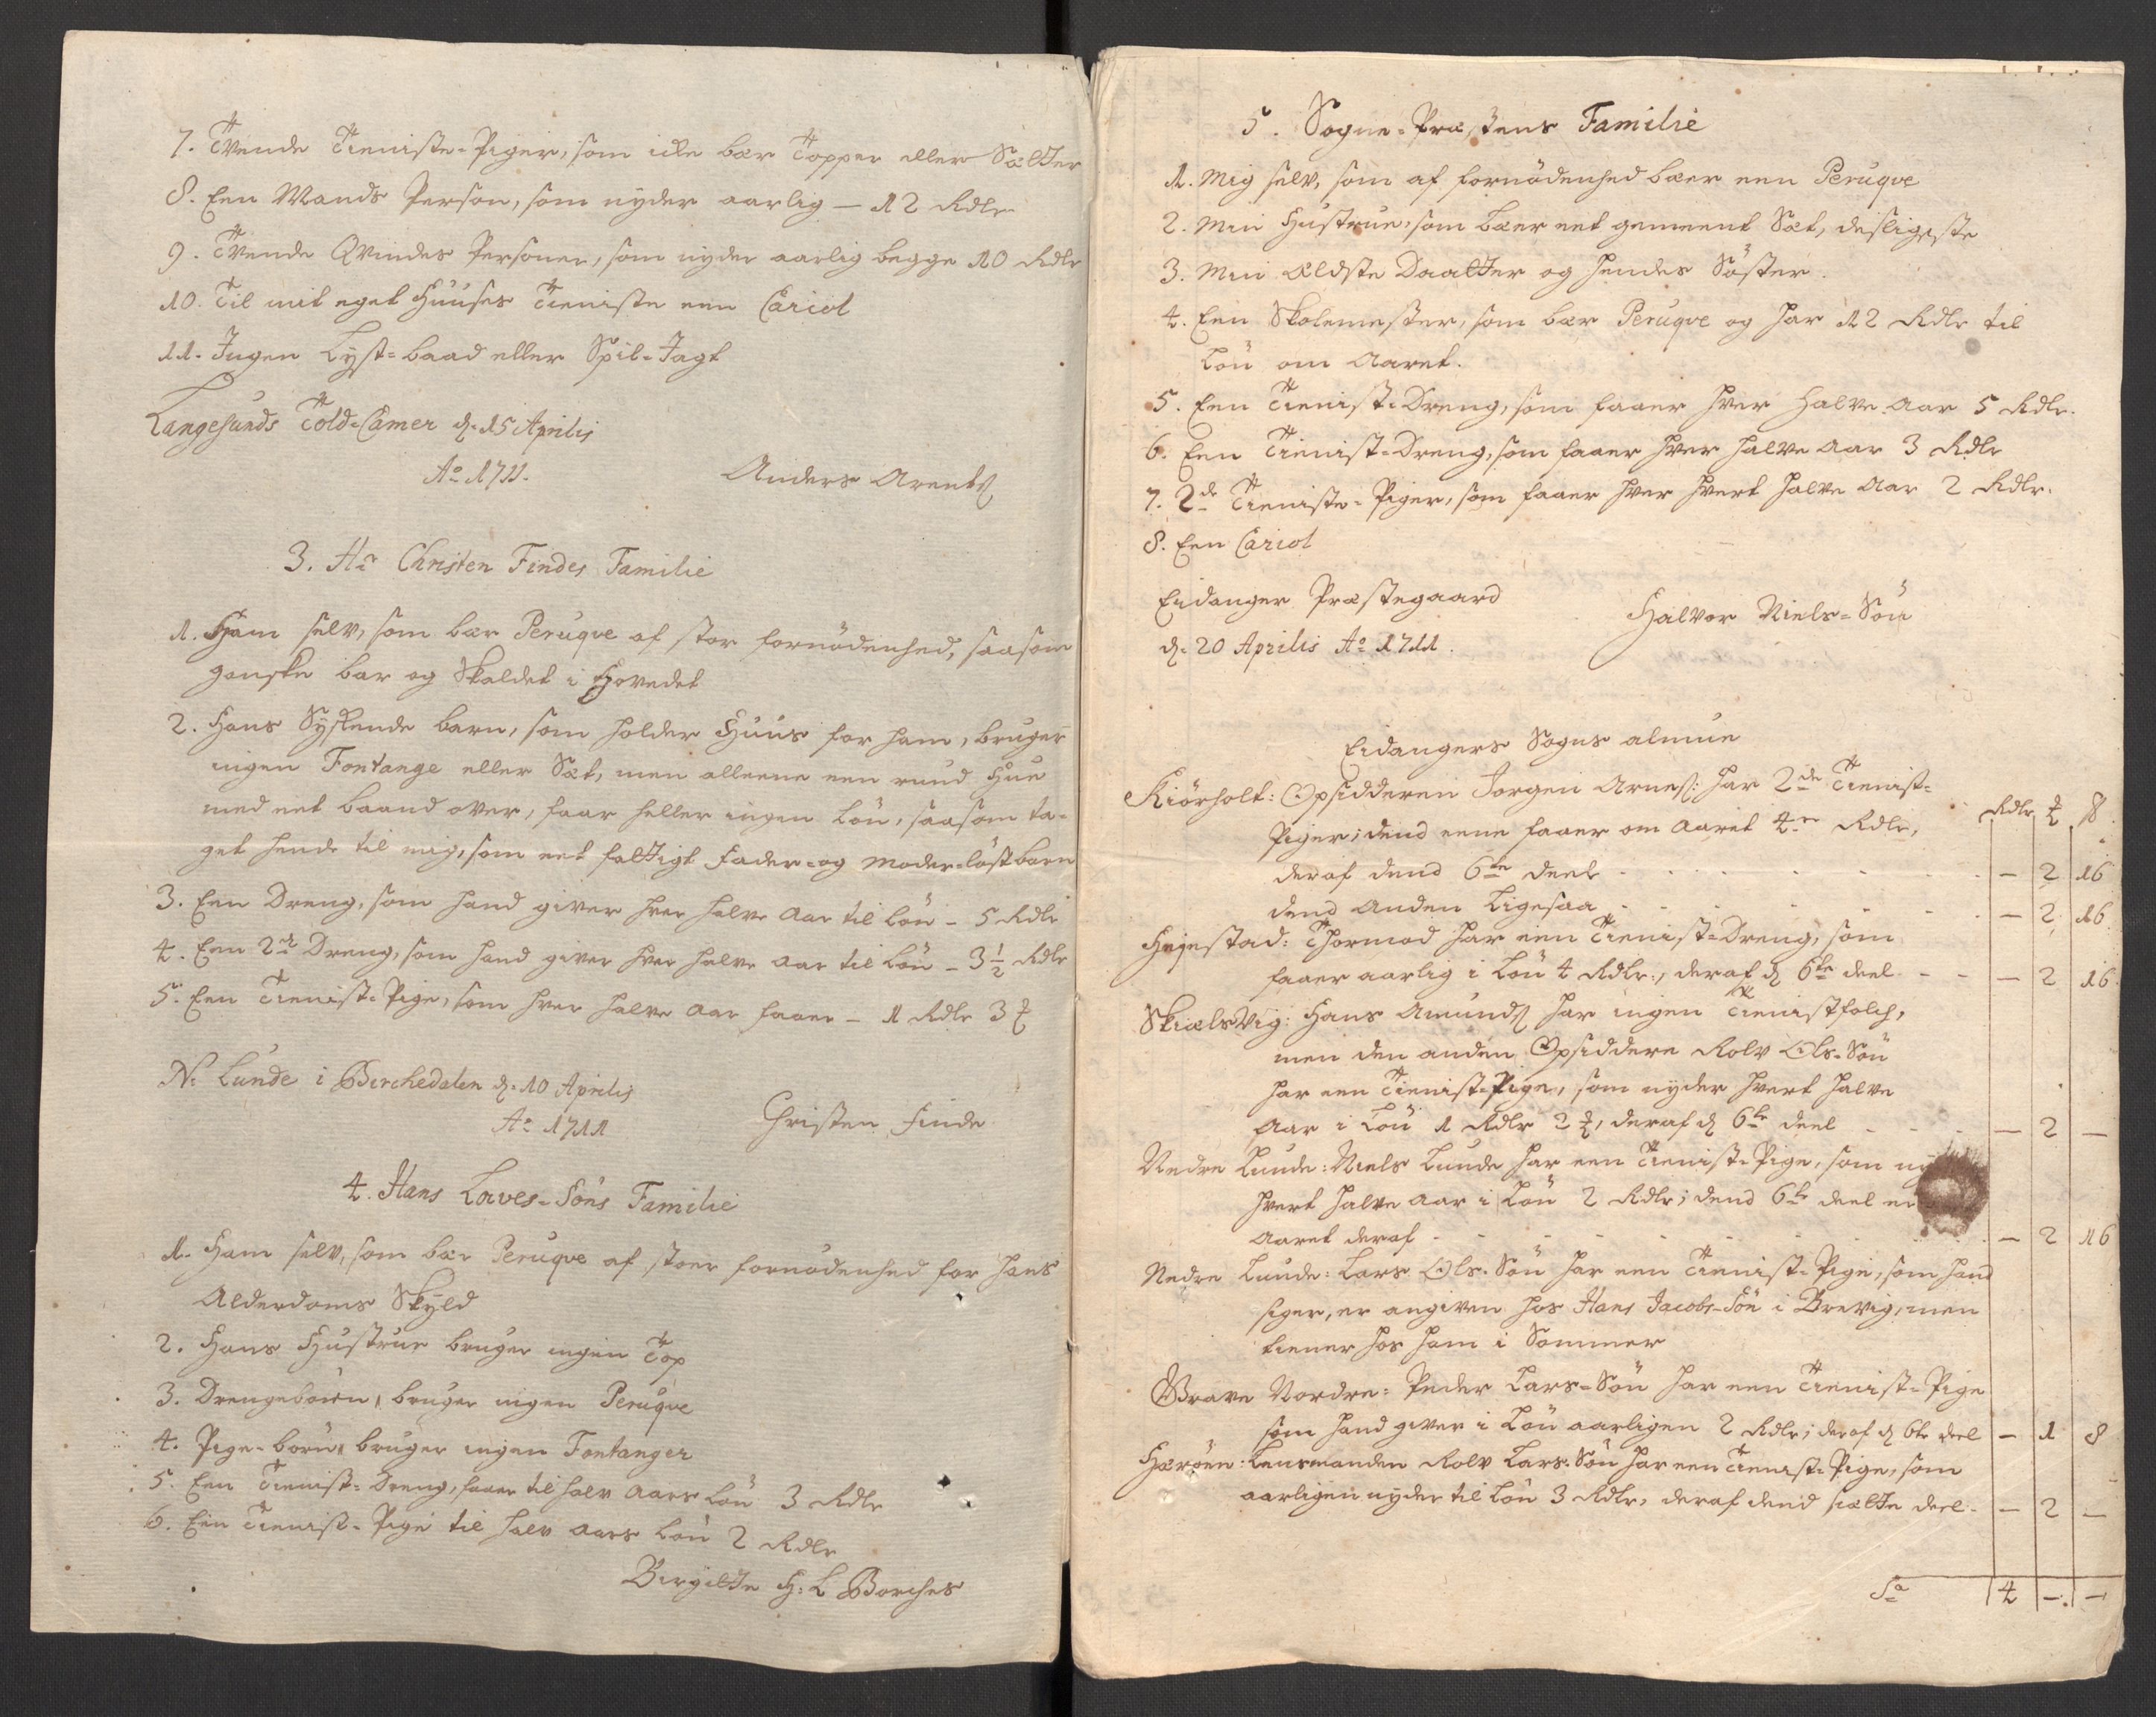 7. Tvende Tieniste-Piger, som icke bær Topper eller Sætter
8. Een Mands Person, som nyder aarlig — 12 Rdlr
9. Tvende Qvindes Personer, som nyder aarlig begge 10 Rdlr
10. Til mit eget Huuses Tieniste een Cariol
11. Ingen Lyst-baad eller Spil-Jagt
Langesunds Told-Camer d. 15 Aprilis
Ao 1711.
Anders Arents
3. Hr Christen Findes Familie
1. Ham selv, som bær Peruqve af stor fornödenhed, saasom
ganske bar og Skaldet i Hovedet
2. Hans Syskende barn, som holder Huus for ham, bruger
ingen Fontange eller Sæt, men alleene een rund Hue
med eet baand over, faar heller ingen Lön, saasom ta-
get hende til mig, som eet fattigt fader- og moder-löst barn
3. Een Dreng, som hand giver hver halve Aar til Lön - 5 Rdlr
4. Een 2de Dreng, som hand giver hver halve Aar til Lön - 3½ Rdlr
5. Een Tienist-Pige, som hver halve Aar faaer - 1 Rdlr 3 ℥
N. Lunde i Birchedalen d. 10 Aprilis
Ao 1711
Christen Finde
4. Hans Laves-Söns Familie
1. Ham selv, som bær Peruqve af stoer fornödenhed for hans
Alderdoms Skyld
2. Hans Hustrue bruger ingen Top
3. Drengebörn, bruger ingen Peruqve
4. Pige-börn, bruger ingen Fontanger
5. Een Tienist-Dreng, faaer til halv Aars Lön 3 Rdlr
6. Een Tienist-Pige til halv Aars Lön 2 Rdlr
Birgitte H: L Borches
5. Sogne-Præstens Familie
1. Mig selv, som af fornödenhed bær een Peruqve
2. Min Hustrue, som bær eet gemeent Sæt, desligeste
3. Min Ældste Daatter og hendes Söster.
4. Een Skolemester, som bær Peruqve og har 12 Rdlr til
Lön om Aaret.
5. Een Tienist-Dreng, som faaer hver Halve Aar 5 Rdlr.
6. Een Tienist-Dreng, som faaer hver halve Aar 3 Rdlr
7. 2de Tieniste-Piger, som faaer hver hvert halve Aar 2 Rdlr.
8. Een Cariol
Eidanger Præstegaard
d. 20 Aprilis Ao 1711.
Halvor Niels-Sön
Eidangers Sogns almue
Kiörholt: Opsidderen Jorgen Arnes: har 2de Tienist-
Rdlr ℥ ß
Piger; dend eene faaer om Aaret 4re Rdlr,
deraf dend 6te deel - 2 16
dend Anden Ligesaa - 2 16
Heiestad: Thormod har een Tienist-Dreng, som
faaer aarlig i Lön 4 Rdlr, deraf d 6te deel - 2 16
Skielsvig: Hans Amunds har ingen Tienistfolch,
men den anden Opsiddere Rolv Ols-Sön
har een Tienist-Pige, som nyder hvert halve
Aar i Lön 1 Rdlr 2 ℥, deraf d 6te deel - 2 -
Nedre Lunde: Niels Lunde har een Tienist-Pige, som
hvert halve Aar i Lön 2 Rdlr; dend 6te deel er
Aaret deraf - 2 16
Nedre Lunde: Lars Ols-Sön har een Tienist-Pige, som hand
siger, er angiven hos Hans Jacobs-Sön i Brevig, men
tiener hos ham i Sommer
Grave Nordre: Peder Lars-Sön har een Tienist-Pige
som hand giver i Lön aarligen 2 Rdlr; deraf d 6te deel - 1 8
Heröen: Lensmanden Rolv Lars-Sön har een Tienist-Pige, som
aarligen nyder til Lön 3 Rdlr, deraf dend siette deel - 2 -
Sa 4 - -